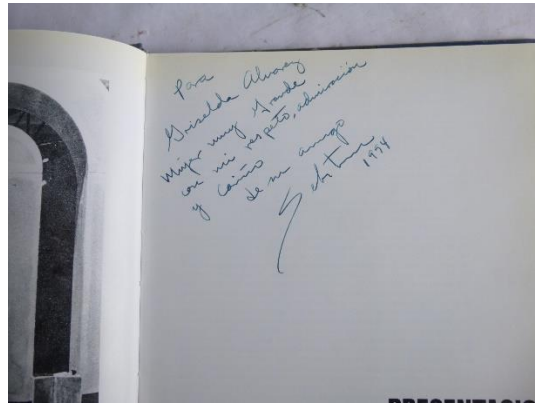 Para
Griselda Alvarez
Mujer muy Grande
con mi respeto, admiración
y cariño
de su amigo
Sebastian
1994
PRESENTACIO